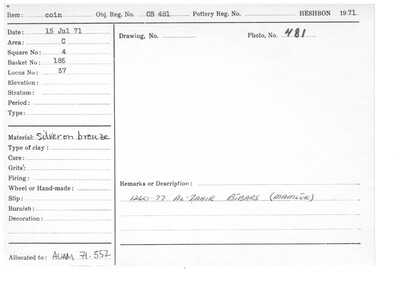 Item: coin Obj. Reg. No. CB 481 Pottery Reg. No. HESHBON 1971
Date: 15 Jul 71
Area: C
Square No: 4
Basket No: 185
Locus No: 37
Elevation:
Stratum:
Period:
Type:
Drawing, No.
Photo, No. 481
Material: Silver on bronze
Type of clay:
Core:
Grits:
Firing:
Wheel or Hand-made:
Slip:
Burnish:
Decoration:
Remarks or Description:
1260-77 AL-ZAHIR BIBARS (MAMLŪK)
Allocated to: AUAM 71.552